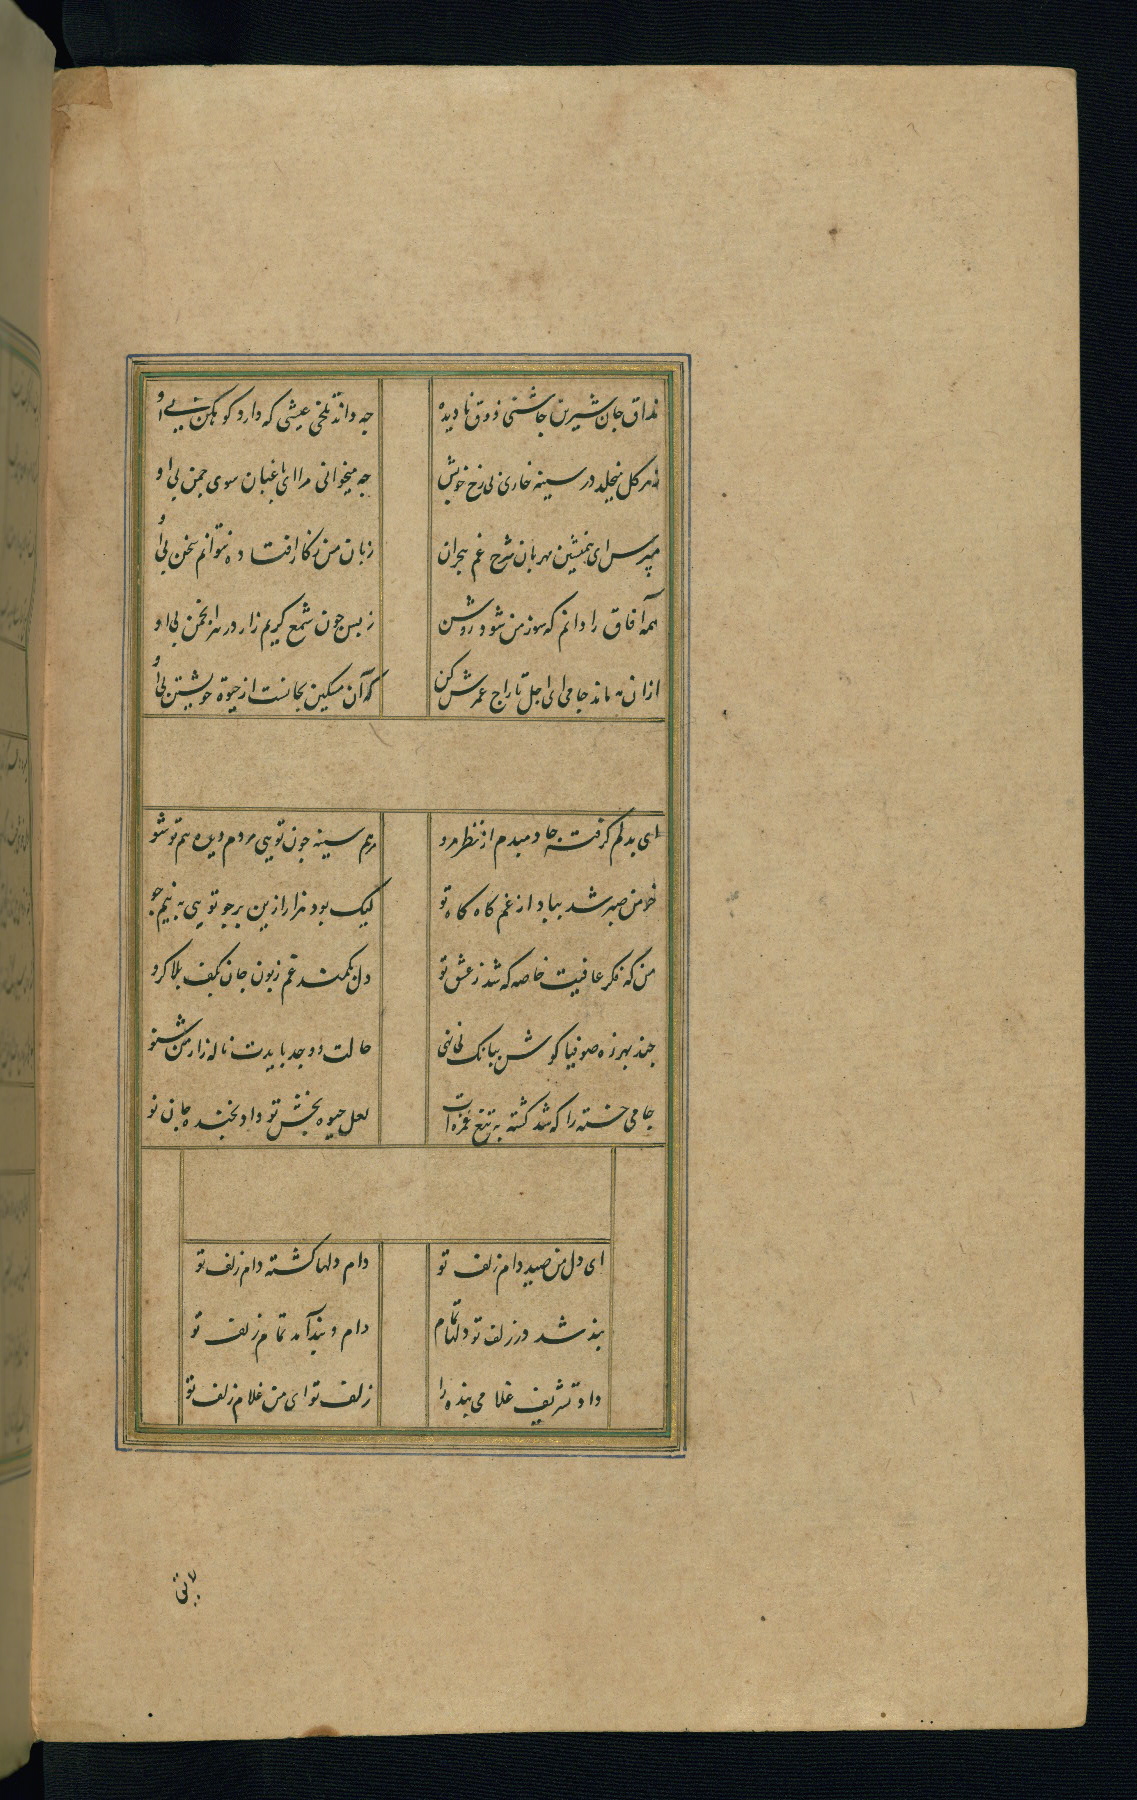 مذاق جان شیرین چاشنی ذوق نادیده جه داند تلخی عیشی که دارد کوهکن بی او
ز هر کل میخلد در سینه خاری بی رخ خویش جه میخوانی مرا ای باغبان سوی جمن بی او
مپرس ای همنشین مهربان شرح غم هجران زبان من ز کار افتاده نتوانم سخن بی او
همه آفاق را دانم که سوز من شود روشن ز بس جون شمع کریم زار در هر انجمن بی او
ازان به ماند جامی ای اجل تاراج عمرش کن که آن مسکین بجانست از حیوة خویشتن بی او
ای بدلم کرفته جا دمبدم از نظر مرو مرهم سینه جون تویی مردم دیده هم تو شو
خرمن صبر شد بباد از غم کاه کاه تو لیک بود هزار ازین بر جو تو یی به نیم جو
من که فکر عافیت خاصه که شد ز عشق تو دل بکمند غم زبون جان بکف بلا کرو
جند بهرزه صوفیا کوش ببانک نی نهی حالت و وجد بایدت ناله زار من شنو
جامی خسته را که شد کشته به تیغ غمزه ات لعل حیوه بخش تو داد بخنده جان نو
ای دل من صید دام زلف تو دام دلها کشته دام زلف تو
بند شد در زلف تو دلها تمام دام و بند آمد تمام زلف تو
داد تشریف غلامی بنده را زلف تو ای من غلام زلف تو